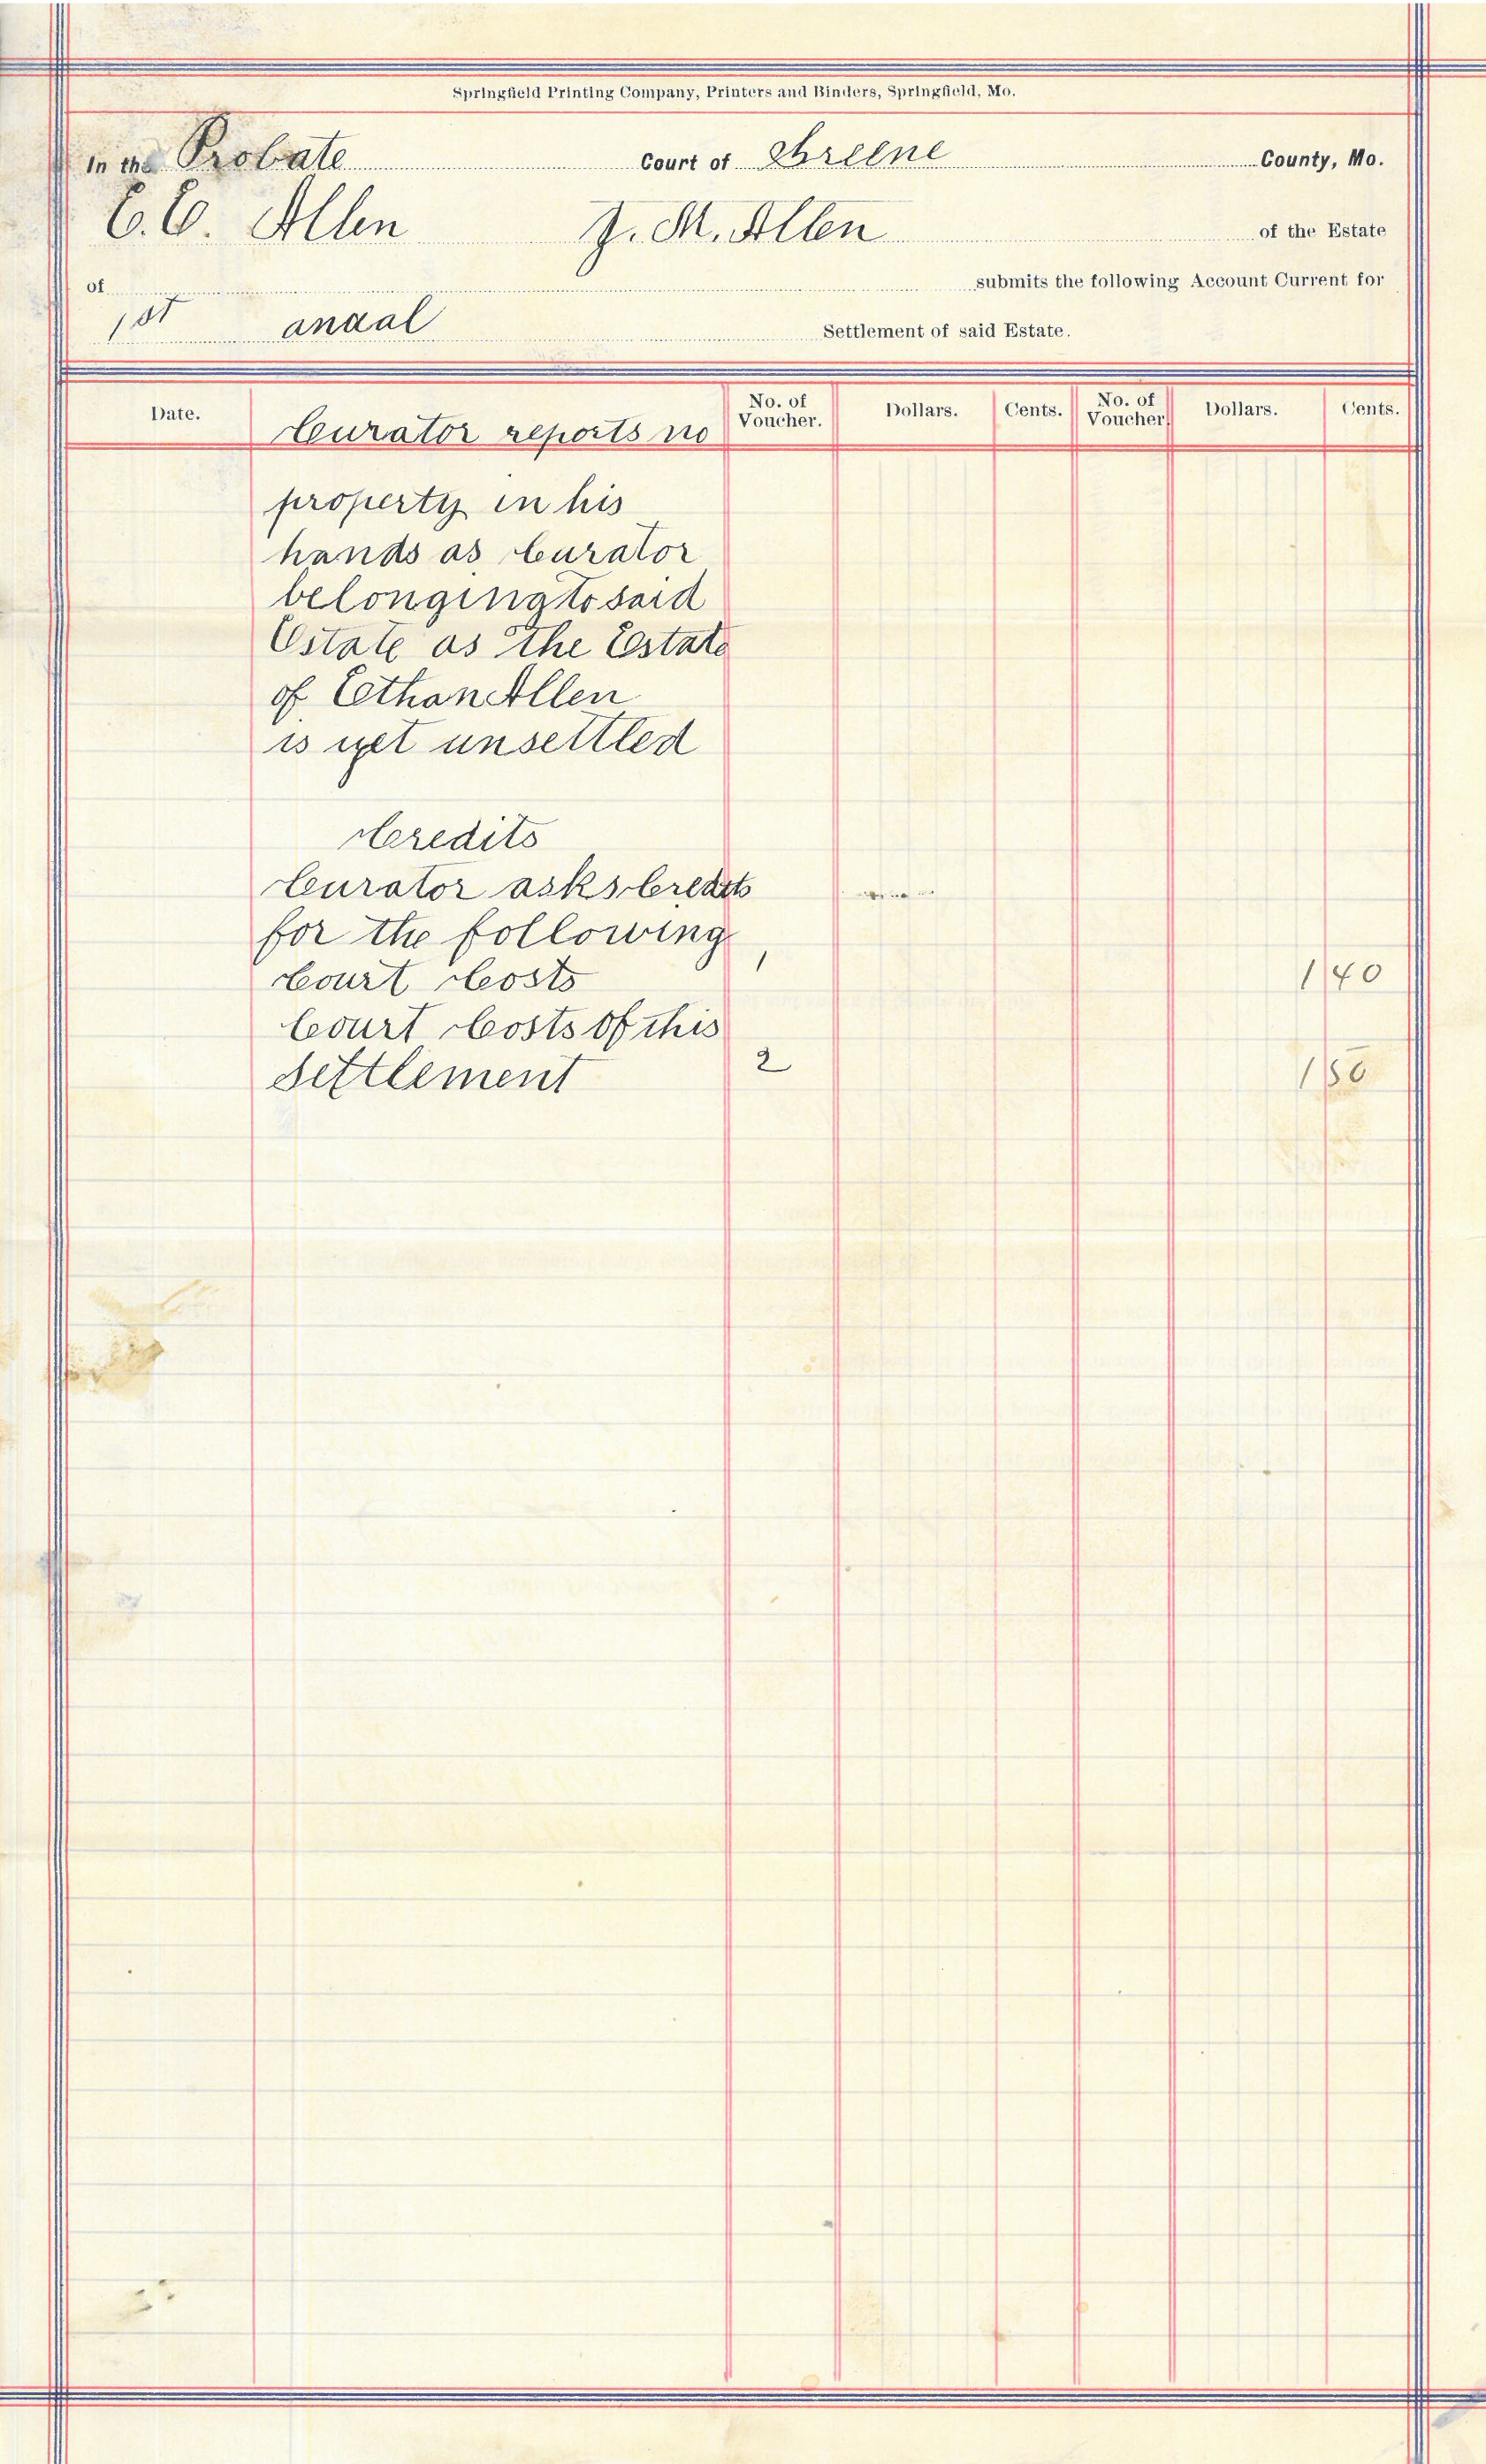 Springfield Printing Company, Printers and Binders, Springfield, Mo.
In the Probate Court of Greene County, Mo.
E. E. Allen J. M. Allen of the Estate
of submits the following Account Current for
1st anual Settlement of said Estate.
Date. No. of Voucher. Dollars. Cents. No. of Voucher Dollars. Cents.
Curator reports no
property in his
hands as Curator
belonging to said
Estate as the Estate
of Ethan Allen
is yet unsettled
Credits
Curator asks Credits
for the following
Court Costs 1 1 40
Court Costs of this
Settlement 2 1 50